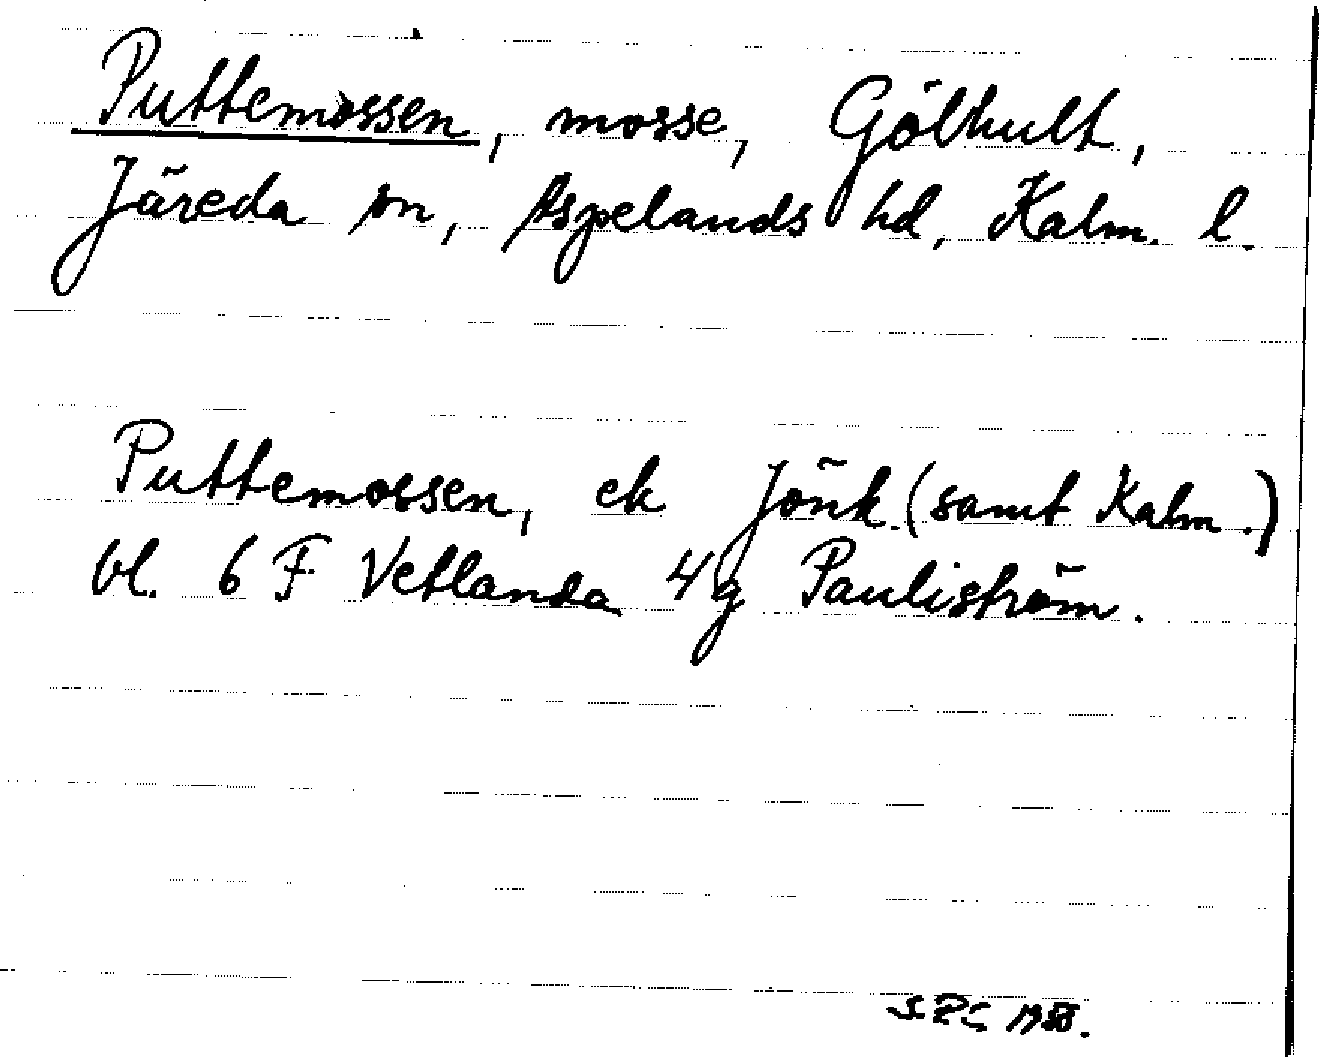 Puttemossen, mosse, Gölhult,
Järeda sn, Aspelands hd, Kalm. l.
Puttemossen, ek Jönk. (samt Kalm.)
bl. 6 F Vetlanda 4 g Pauliström.